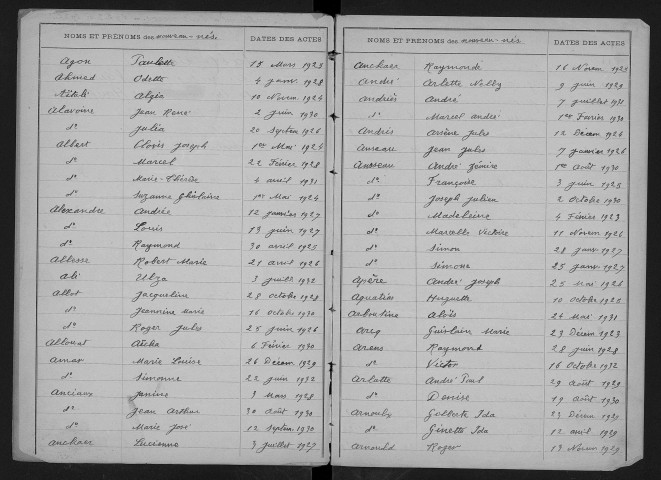 NOMS ET PRÉNOMS des nouveau-nés DATES DES ACTES
Agon Paulette 15 Mars 1923
Ahmed Odette 4 janv. 1928
Algia 10 Novem 1924
Alavoine Jean René 2 juin 1930
do Julia 20 Septem 1926
Albert Clovis Joseph 1er Mai 1924
do Marcel 22 Février 1928
do Marie-Thérèse 4 avril 1931
do Suzanne Ghislaine 1er Mai 1924
Alexandre Andrée 12 janvier 1927
do Louis 13 juin 1927
do Raymond 30 avril 1925
Allesse Robert Marie 21 avril 1926
Ali Ulza 3 juillet 1932
Allot Jacqueline 28 octobre 1928
do Jeannine Marie 16 octobre 1930
do Roger Jules 25 juin 1926
Allouat 6 Février 1930
Amar Marie Louise 26 Décem 1929
do Simonne 22 juin 1932
Anciaux Janine 3 Mars 1928
do Jean Arthur 30 août 1930
do Marie José 12 Septem 1930
Anckaer Lucienne 3 juillet 1927
NOMS ET PRÉNOMS des nouveau-nés DATES DES ACTES
Anckaer Raymonde 16 Novem
André Arlette Nelly 9 juin 1929
Andriès André 7 juillet 1931
do Marcel André 1er Février 1930
Andriès Arsène Jules 12 Décem 1924
Anseau Jean Jules 7 janvier 1926
Ansseau André Zémire 1er août 1930
do Françoise 3 juin 1925
do Joseph Julien 2 octobre 1930
do Madeleine 4 Février 1923
do Marcelle Victoire 11 Novem 1926
do Simon 28 janv 1927
do Simone 25 janv 1927
Apère André Joseph 25 Mai 1926
Aquatias Huguette 10 octobre 1925
Arboutine Aloïs 24 Mai 1931
Arcq Guislain Marie 23 Décem 1923
Arens Raymond 28 juin 1928
do Victor 16 octobre 1932
Arlotte André Paul 29 août 1929
do Denise 19 août 1930
Arnould Gilberte Ida 23 Décem 1927
do Ginette Ida 12 avril 1929
Arnould Roger 13 Novem 1929